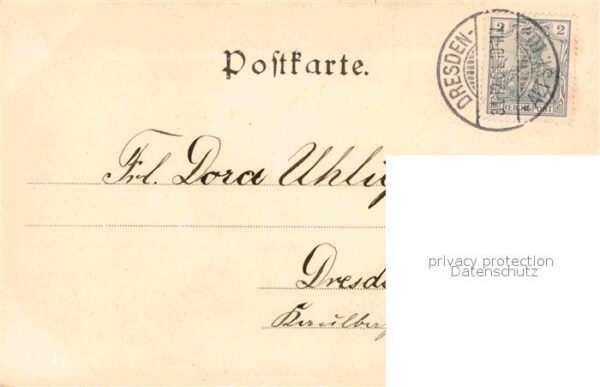 2 2
DRESDEN-
REICHSPOST
Postkarte.
Frl. Dora Uhlig
privacy protection
Datenschutz
Dresd
Kaulba